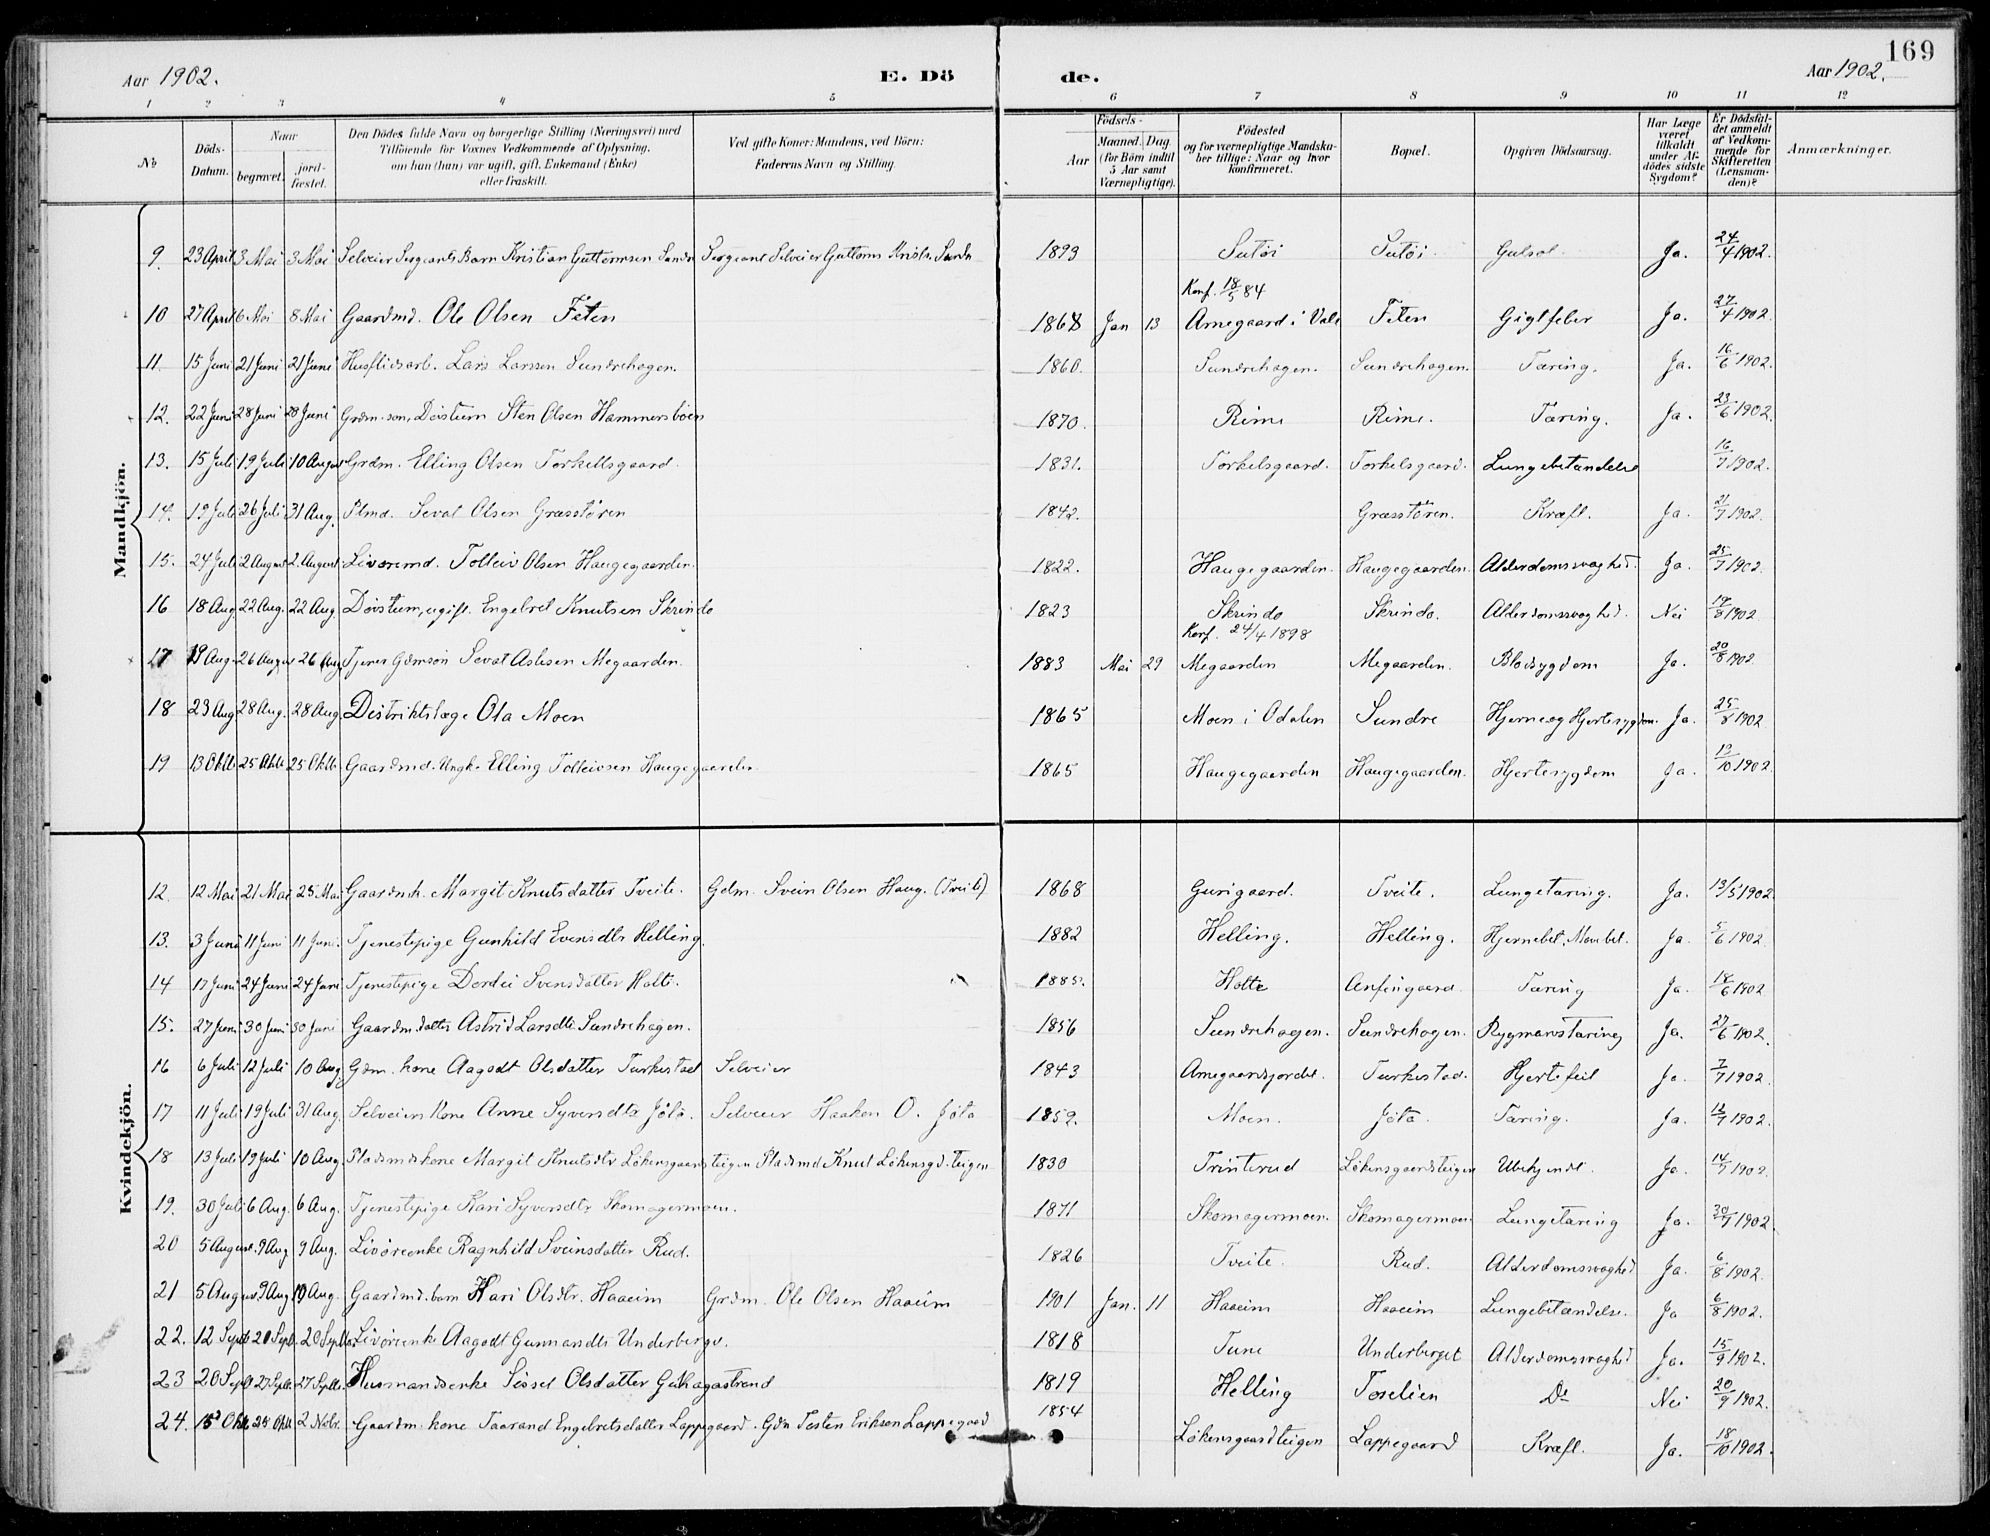 169
Aar 1902. E. Dö de. Aar 1902.
1 2 3 4 5 6 7 8 9 10 11 12
No
Döds-Datum.
Naar
begravet.
jord-fæstet.
Den Dödes fulde Navn og borgerlige Stilling (Næringsvei) med
Tilföiende for Voxnes Vedkommende af Oplysning,
om hun (han) var ugift, gift, Enkemand (Enke)
eller fraskilt.
Ved gifte Koner: Mandens, ved Börn:
Faderens Navn og Stilling
Födsels-
Aar
Maaned. Dag.
(for Börn indtil
5 Aar samt
Værnepligtige).
Födested
og for værnepligtige Mandska-
ber tillige: Naar og hvor
konfirmeret.
Bopæl.
Opgiven Dödsaarsag.
Har Læge
været
tilkaldt
under Af-
dödes sidste
Sygdom?
Er Dödsfal-
det anmeldt
af Vedkom-
mende for
Skifteretten
(Lensman-
den)?
Anmærkninger.
Mandkjön.
9. 23 April 3 Mai 3 Mai Selveier Sergeants Barn Kristian Guttormsen Sergeant Selveier Guttorm 1893 Sutöi Sutöi Gulsot Ja. 24/4 1902.
Konf. 18/5 84
10 27 April 6 Mai 8 Mai Gaardmd. Ole Olsen Feten 1868 Jan 13 Arnegaard i Vats Feten Gigtfeber Ja. 27/4 1902.
11. 15 Juni 21 Juni 21 Juni Husflidsarb. Lars Larssen Sundrehagen. 1860. Sundrehagen. Sundrehagen. Tæring. Ja. 16/6 1902.
12. 22 Juni 28 Juni 28 Juni Grdm. son, Döistum Sten Olsen Hammersböen 1870. Rime Rime. Tæring. Ja. 23/6 1902.
13. 15 Juli 19 Juli 10 August Grdm. Elling Olsen Torkellsgaard. 1831. Torkelsgaard. Torkelsgaard. Lungebetændelse 16/7 1902.
14. 19 Juli 26 Juli 31 Aug. Plmd. Sevat Olsen Græsstören 1842. Græsstören. Kræft. Ja. 21/7 1902.
15. 24 Juli 2 August 2. August Livöremd. Tolleiv Olsen Haugegaarden. 1822. Haugegaarden. Haugegaarden. Alderdomssvaghed. Ja. 25/7 1902.
16 18 Aug 22 Aug. 22 Aug. Döistum, ugift. Engebret Knutsen Skrindo 1823 Skrindo Skrindo. Alderdomssvaghed. Nei 19/8 1902
Konf. 24/4 1898
17 19 Aug. 26 August 26 Aug Tjener Gdmsön Sevat Aslesen Megaarden. 1883 Mai 29 Megaarden Megaarden. Blodsygdom Ja. 20/8 1902.
18 23 Aug 28 Aug. 28 Aug. Distriktslæge Ola Moen 1865 Moen i Odalen Sundre Hjerne og Hjertesygdom. Ja. 25/8 1902
19 13 Oktb. 25 Oktb 25 Oktb. Gaardmd. Ungk. Elling Tolleivsen Haugegaarden 1865 Haugegaarden Haugegaarden. Hjertesygdom Ja. 13/10 1902.
Kvindekjön.
12. 12 Mai 21 Mai 25 Mai Gaardmk. Margit Knutsdatter Tveite. Gdm. Svein Olsen Haug. (Tveite) 1868 Gurigaard. Tveite. Lungetæring. Ja. 13/5 1902.
13. 3 Juni 11 Juni 11 Juni. Tjenestepige Gunhild Evensdtr Helling. 1882 Helling. Helling. Hjernebet. Mavebet. Ja. 5/6 1902.
14 17 Juni 24 Juni 24 Juni Tjenestepige Dordei Svensdatter Holte. 1885. Holte Anfingaard Tæring Ja. 18/6 1902
15. 27 Juni 30 Juni 30 Juni Gaardm. datter Astrid Larsdtr Sundrehagen. 1856 Sundrehagen. Sundrehagen. Rygmarvstæring Ja. 27/6 1902.
16 6 Juli 12 Juli 10 Aug. Gdm. kone Aagodt Olsdatter Turkestad Selveier 1843 Arnegaardsjordet. Turkestad. Hjertefeil Ja. 7/7 1902.
17 11 Juli 19 Juli 31 Aug. Selveiers Kone Anne Syversdtr Jöto. Selveier Haakon O. Jöto 1852. Moen. Jöto. Tæring. Ja. 12/7 1902.
18 13 Juli 19 Juli 10 Aug. Pladsmdskone Margit Knutsdtr Lökensgaardsteigen Pladsmd Knut Lökensgd.teigen 1830 Trinterud Lökensgaardsteigen Ubekjendt. Ja. 14/7 1902.
19. 30 Juli 6 Aug. 6 Aug. Tjenestepige Kari Syversdtr Skomagermoen. 1871 Skomagermoen. Skomagermoen Lungetæring Ja. 30/7 1902.
20 5 August. 9 Aug 9 Aug. Livöreenke Ragnhild Sveinsdatter Rud. 1826 Tveite. Rud. Alderdomssvaghed Ja. 6/8 1902.
21 5 August. 9 Aug 10 Aug. Gaardmd.barn Kari Olsdtr. Haaeim Grdm. Ole Olsen Haaeim 1901 Jan. 11 Haaeim Haaeim Lungebetændelse. Ja 6/8 1902.
22. 12 Septb 20 Sept. 20 Septb. Livöreenke Aagodt Gunnarsdtr Underberge. 1818 Tune Underberget Alderdomssvaghed Ja. 15/9 1902.
23 20 Sept 27 Septb. 27 Septb. Husmandsenke Sissel Olsdatter Guthagastrand 1819 Helling Toselien Do Nei 20/9 1902.
24. 15 Oktb 25 Oktb 2 Novbr. Gaardm. kone Taarand Engebretsdatter Lappegaard. Gdm Testen Eriksen Lappegaard 1854 Lökensgaardteigen Lappegaard Kræft. Ja. 18/10 1902.